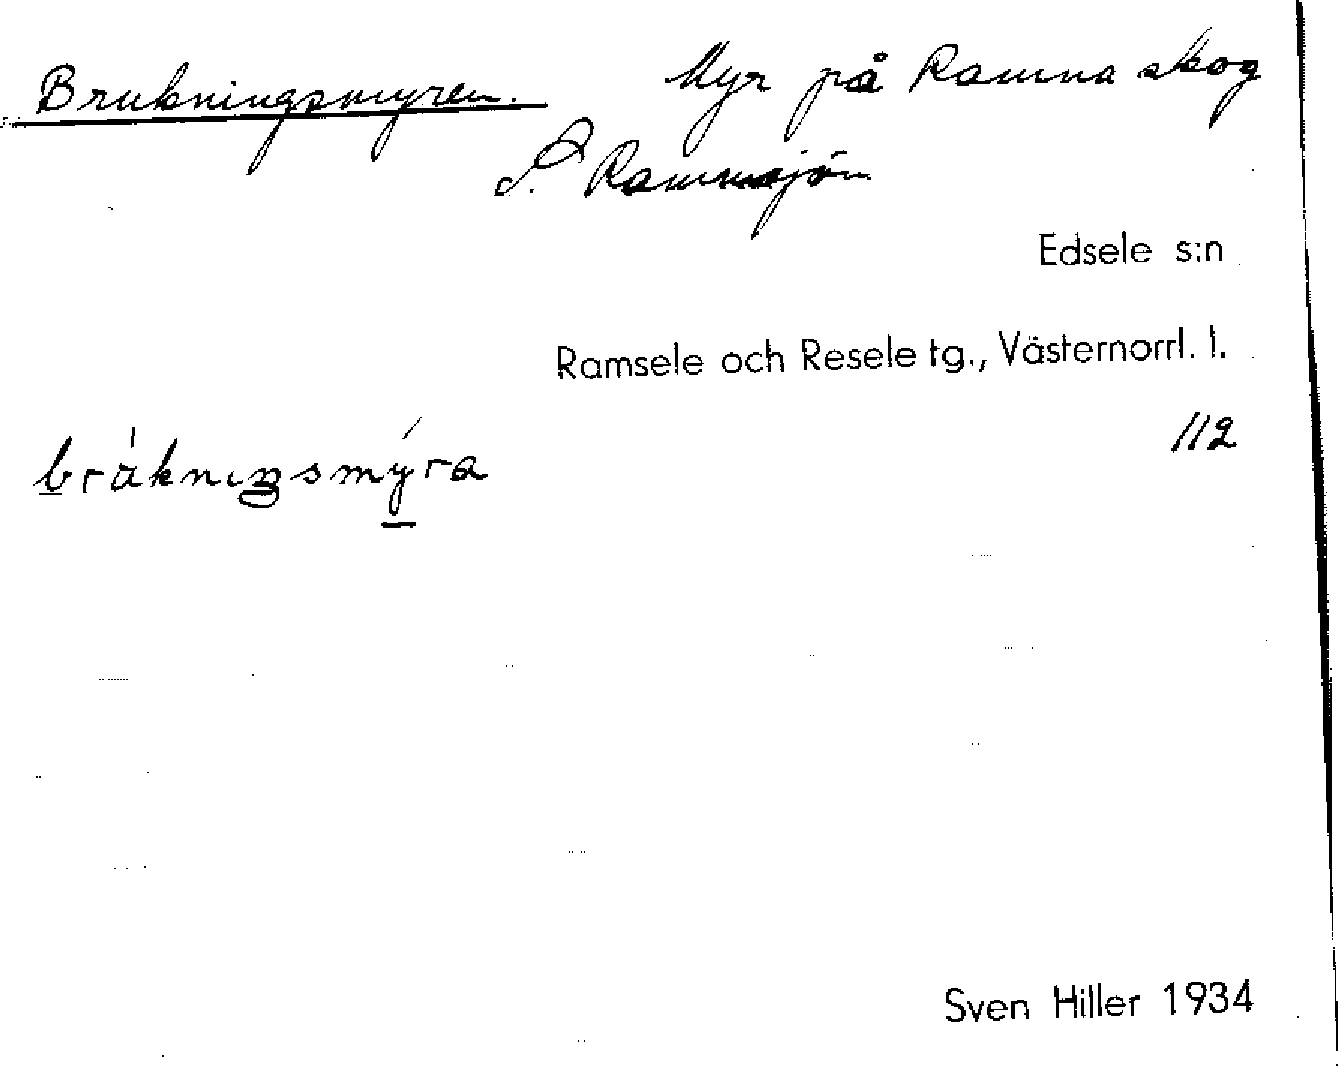 Brukningsmyren. Myr på Ramna skog
S. Ramnsjön
Edsele s:n
Ramsele och Resele tg., Västernorrl. l.
112
Sven Hiller 1934